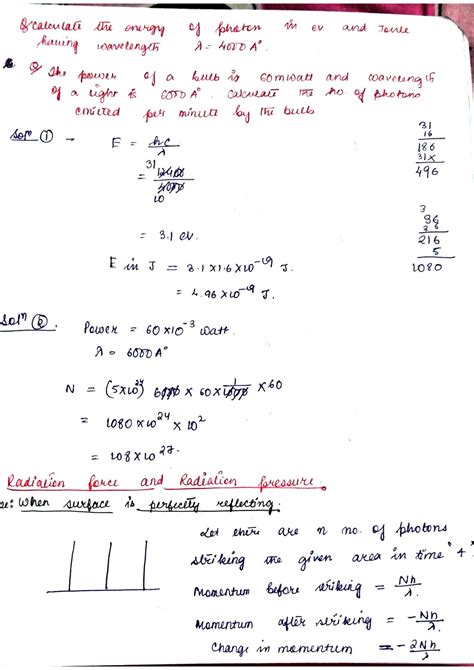 Q Calculate the energy of photon in ev and Joule
having wavelength λ = 4000 A°.
Q The power of a bulb is 60mwatt and wavelength
of a light is 6000 A°. Calculate the no. of photons
emitted per minute by the bulb
Solⁿ ① → E = hc/λ
= 12400/4000
31
10
= 3.1 ev.
E in J = 3.1 x 1.6 x 10⁻¹⁹ J.
= 4.96 x 10⁻¹⁹ J.
31
16
186
31x
496
3
36
36
216
5
1080
Solⁿ ②. Power = 60 x 10⁻³ watt.
λ = 6000 A°
N = (5x10²⁴) 6000 x 60 x 1/1000 x 60
= 1080 x 10²⁴ x 10²
= 108 x 10²⁷.
Radiation force and Radiation pressure.
When surface is perfectly reflecting.
Let there are n no. of photons
striking the given area in time "t"
Momentum before striking = Nh/λ.
Momentum after striking = -Nh/λ.
Change in momentum = -2Nh/λ